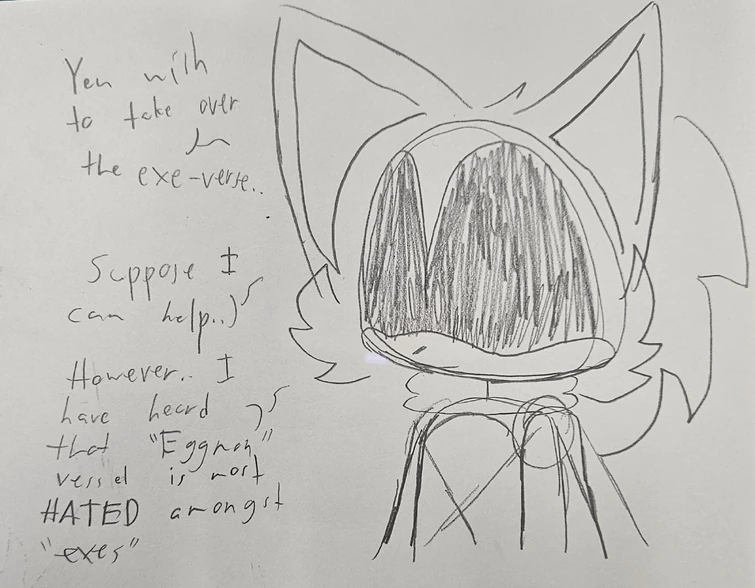 You wish
to take over
the exe-verse..
Suppose I
can help..
However.. I
have heard
that "Eggman"
vessel is most
HATED amongst
"exes"